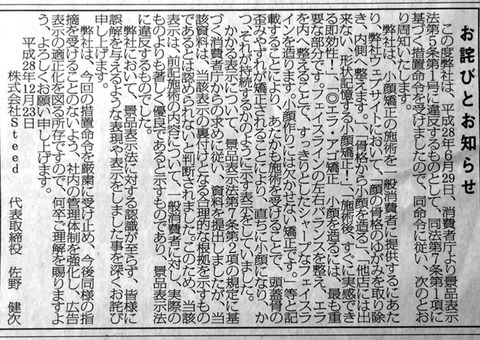 お詫びとお知らせ
この度弊社は、平成28年6月29日、消費者庁より景品表示
法第5条第1号に違反するものとして、同法第7条第1項に
基づく措置命令を受けましたので、同命令に従い、次のとお
り周知いたします。
弊社は、小顔矯正の施術を一般消費者に提供するにあた
り、弊社ウェブサイトにおいて、「顔の骨格のゆがみを取り除
き、内側へ整えます。」「骨格から小顔を造る」「他店には出
来ない、形状記憶する小顔矯正!」「施術後、すぐに実感でき
る即効性!」「○エラ・アゴ矯正　小顔を造るには、最も重
要な部分です。フェイスラインの左右バランスを整え、エラ
を内へ整えることで、すっきりとしたシャープなフェイスラ
インを造ります。小顔作りには欠かせない、矯正です。」等と記
載することにより、あたかも施術を受けることで、頭蓋骨の
歪みやずれが矯正されることにより、直ちに小顔になり、か
つ、それが持続するかのように示す表示をしていました。
かかる表示について、景品表示法第7条第2項の規定に基
づく消費者庁からの求めに従い、資料を提出しましたが、当
該資料は、当該表示の裏付けとなる合理的な根拠を示すもの
であるとは認められないと判断されました。このため、当該
表示は、前記施術の内容について、一般消費者に対し、実際の
ものよりも著しく優良であると示すものであり、景品表示法
に違反するものでした。
弊社において、景品表示法に対する認識が至らず、皆様に
誤解を与えるような表現や表示をしました事を深くお詫び
申し上げます。
弊社は、今回の措置命令を厳粛に受け止め、今後同様の指
摘を受けることのないよう、社内の管理体制を強化し、広告
表示の適正化を図る所存ですので、何卒ご理解を賜りますよ
う、よろしくお願い申し上げます。
平成28年12月23日
株式会社Steed　代表取締役　佐野　健次